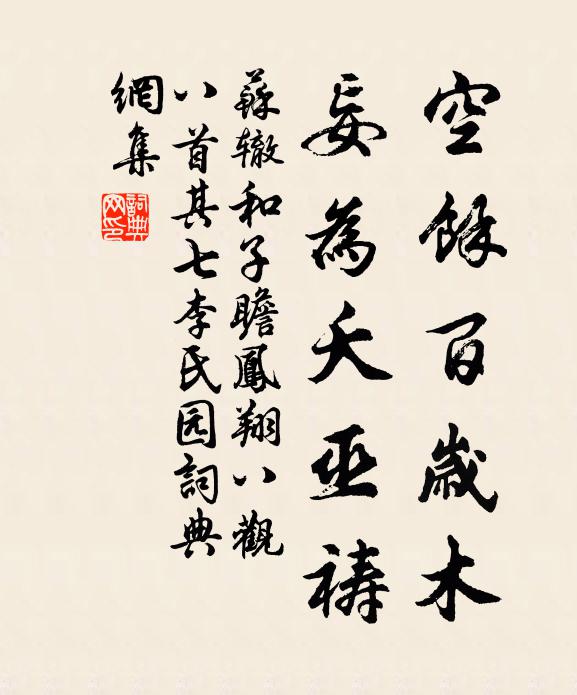 空餘百歲木
妄為夭巫禱
蘇轍和子瞻鳳翔八觀
八首其七李氏园詞典
網集
詞典網印